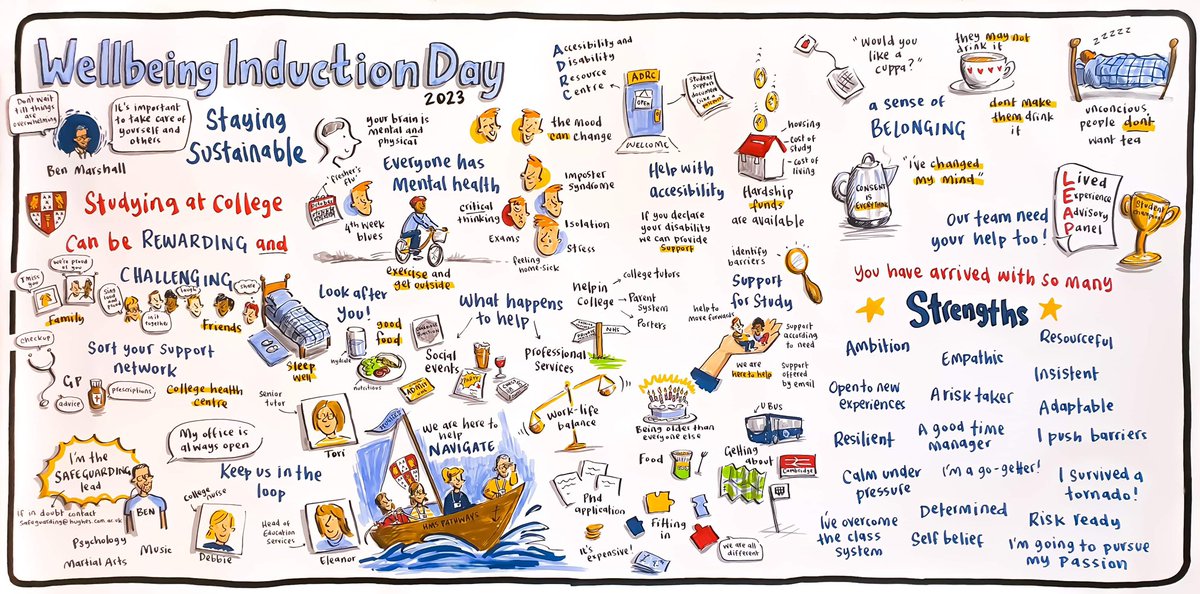 Wellbeing Induction Day
2023
Dont wait
till things
are
overwhelming
It's important
to take care of
yourself and
others
Ben Marshall
Staying
Sustainable
Studying at College
Can be REWARDING and
CHALLENGING
I miss
you
we're proud
of you
Family
Sing
loud and
proud
in it
together
laugh
share
Friends
Sort your support
network
checkup
GP
advice
prescriptions
College health
centre
My office is
always open
I'm the
SAFEGUARDING
lead
BEN
If in doubt contact
Safeguarding@hughes.cam.ac.uk
Psychology
Music
Martial Arts
Keep us in the
loop
College
nurse
Debbie
Senior
tutor
Tori
Head of
Education
Services
Eleanor
your brain is
mental and
physical
the mood
can change
Everyone has
Mental health
"fresher's
flu"
4th week
blues
critical
thinking
Exams
Imposter
Syndrome
Isolation
Stress
feeling
home-sick
exercise and
get outside
Look after
you!
Sleep
well
hydrate
good
food
nutritious
What happens
to help
Social
events
Professional
Services
We are here to
help
NAVIGATE
HMS PATHWAYS
Accessibility and
Disability
Resource
Centre
ADRC
OPEN
WELCOME
Student
Support
document
Help with
accesibility
If you declare
your disability
we can provide
support
housing
cost of
study
cost of
living
Hardship
funds
are available
Help in
College
college tutors
Parent
System
Porters
NHS
identify
barriers
Support
for Study
help to
move forwards
support
according
to need
we are
here to help
Support
offered
by email
Work-life
balance
Being older than
everyone else
Food
U BUS
Getting
about
Cambridge
Phd
application
It's expensive!
Fitting
in
we are all
different
"Would you
like a
cuppa?"
they may not
drink it
zzzzz
a sense of
BELONGING
dont make
them drink
it
unconcious
people dont
want tea
CONSENT
IS
EVERYTHING
"i've changed
my mind"
Our team need
your help too!
Lived
Experience
Advisory
Panel
Student
Champions
You have arrived with so many
Strengths
Ambition
Empathic
Resourceful
Insistent
Open to new
experiences
A risk taker
Adaptable
Resilient
A good time
manager
I push barriers
Calm under
pressure
I'm a go-getter!
I survived a
tornado!
I've overcome
the class
system
Determined
Self belief
Risk ready
I'm going to pursue
my passion